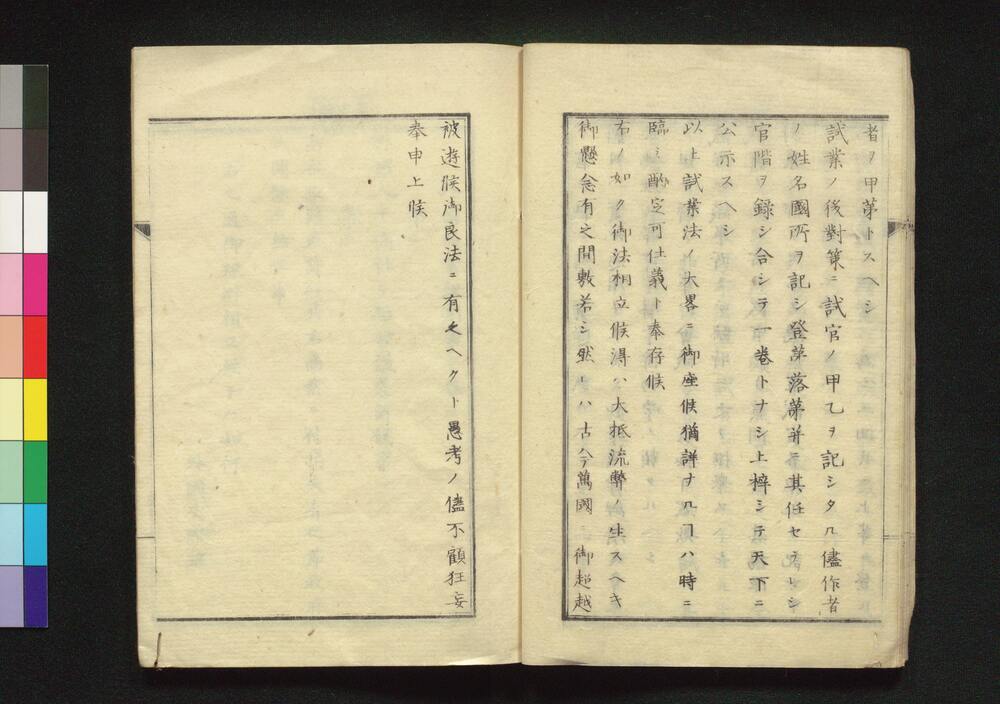 者ヲ甲第トスヘシ
試業ノ後對策ニ試官ノ甲乙ヲ記シタル儘作者
ノ姓名國所ヲ記シ登第落第并ニ其任セラレシ
官階ヲ録シ合シテ一巻トナシ上梓シテ天下ニ
公示スヘシ
以上試業法ノ大畧ニ御座候猶詳ナルヿハ時ニ
臨ミ酌定可仕義ト奉存候
右ノ如ク御法相立候得ハ大抵流弊ノ生スヘキ
御懸念有之間敷若シ然レハ古今萬國ニ御超越
被遊候御良法ニ有之ヘクト愚考ノ儘不顧狂妄
奉申上候